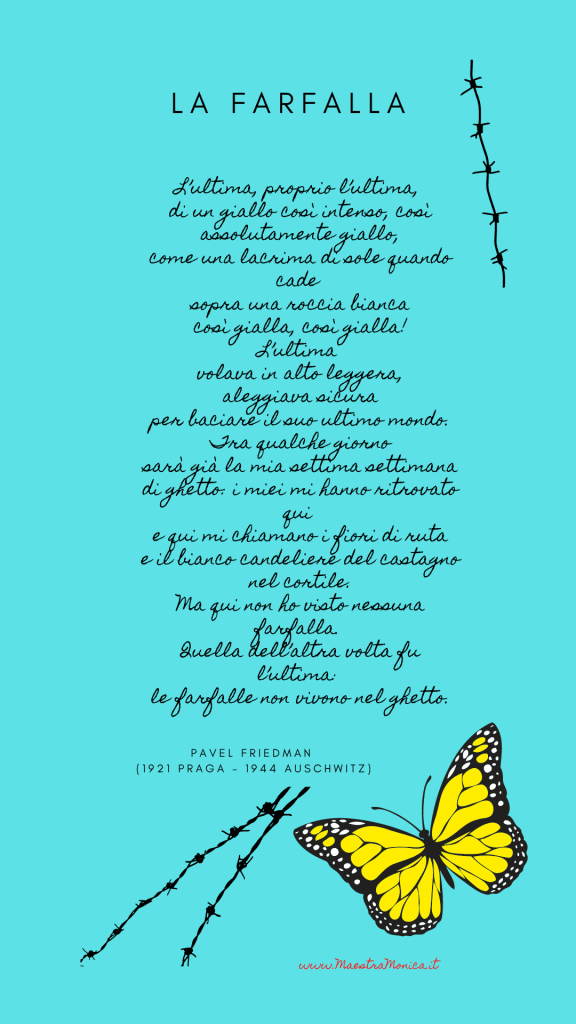 LA FARFALLA
L'ultima, proprio l'ultima,
di un giallo così intenso, così
assolutamente giallo,
come una lacrima di sole quando
cade
sopra una roccia bianca
così gialla, così gialla!
L'ultima
volava in alto leggera,
aleggiava sicura
per baciare il suo ultimo mondo.
Tra qualche giorno
sarà già la mia settima settimana
di ghetto: i miei mi hanno ritrovato
qui
e qui mi chiamano i fiori di ruta
e il bianco candeliere del castagno
nel cortile.
Ma qui non ho visto nessuna
farfalla.
Quella dell'altra volta fu
l'ultima:
le farfalle non vivono nel ghetto.
PAVEL FRIEDMAN
(1921 PRAGA - 1944 AUSCHWITZ)
www.MaestraMonica.it